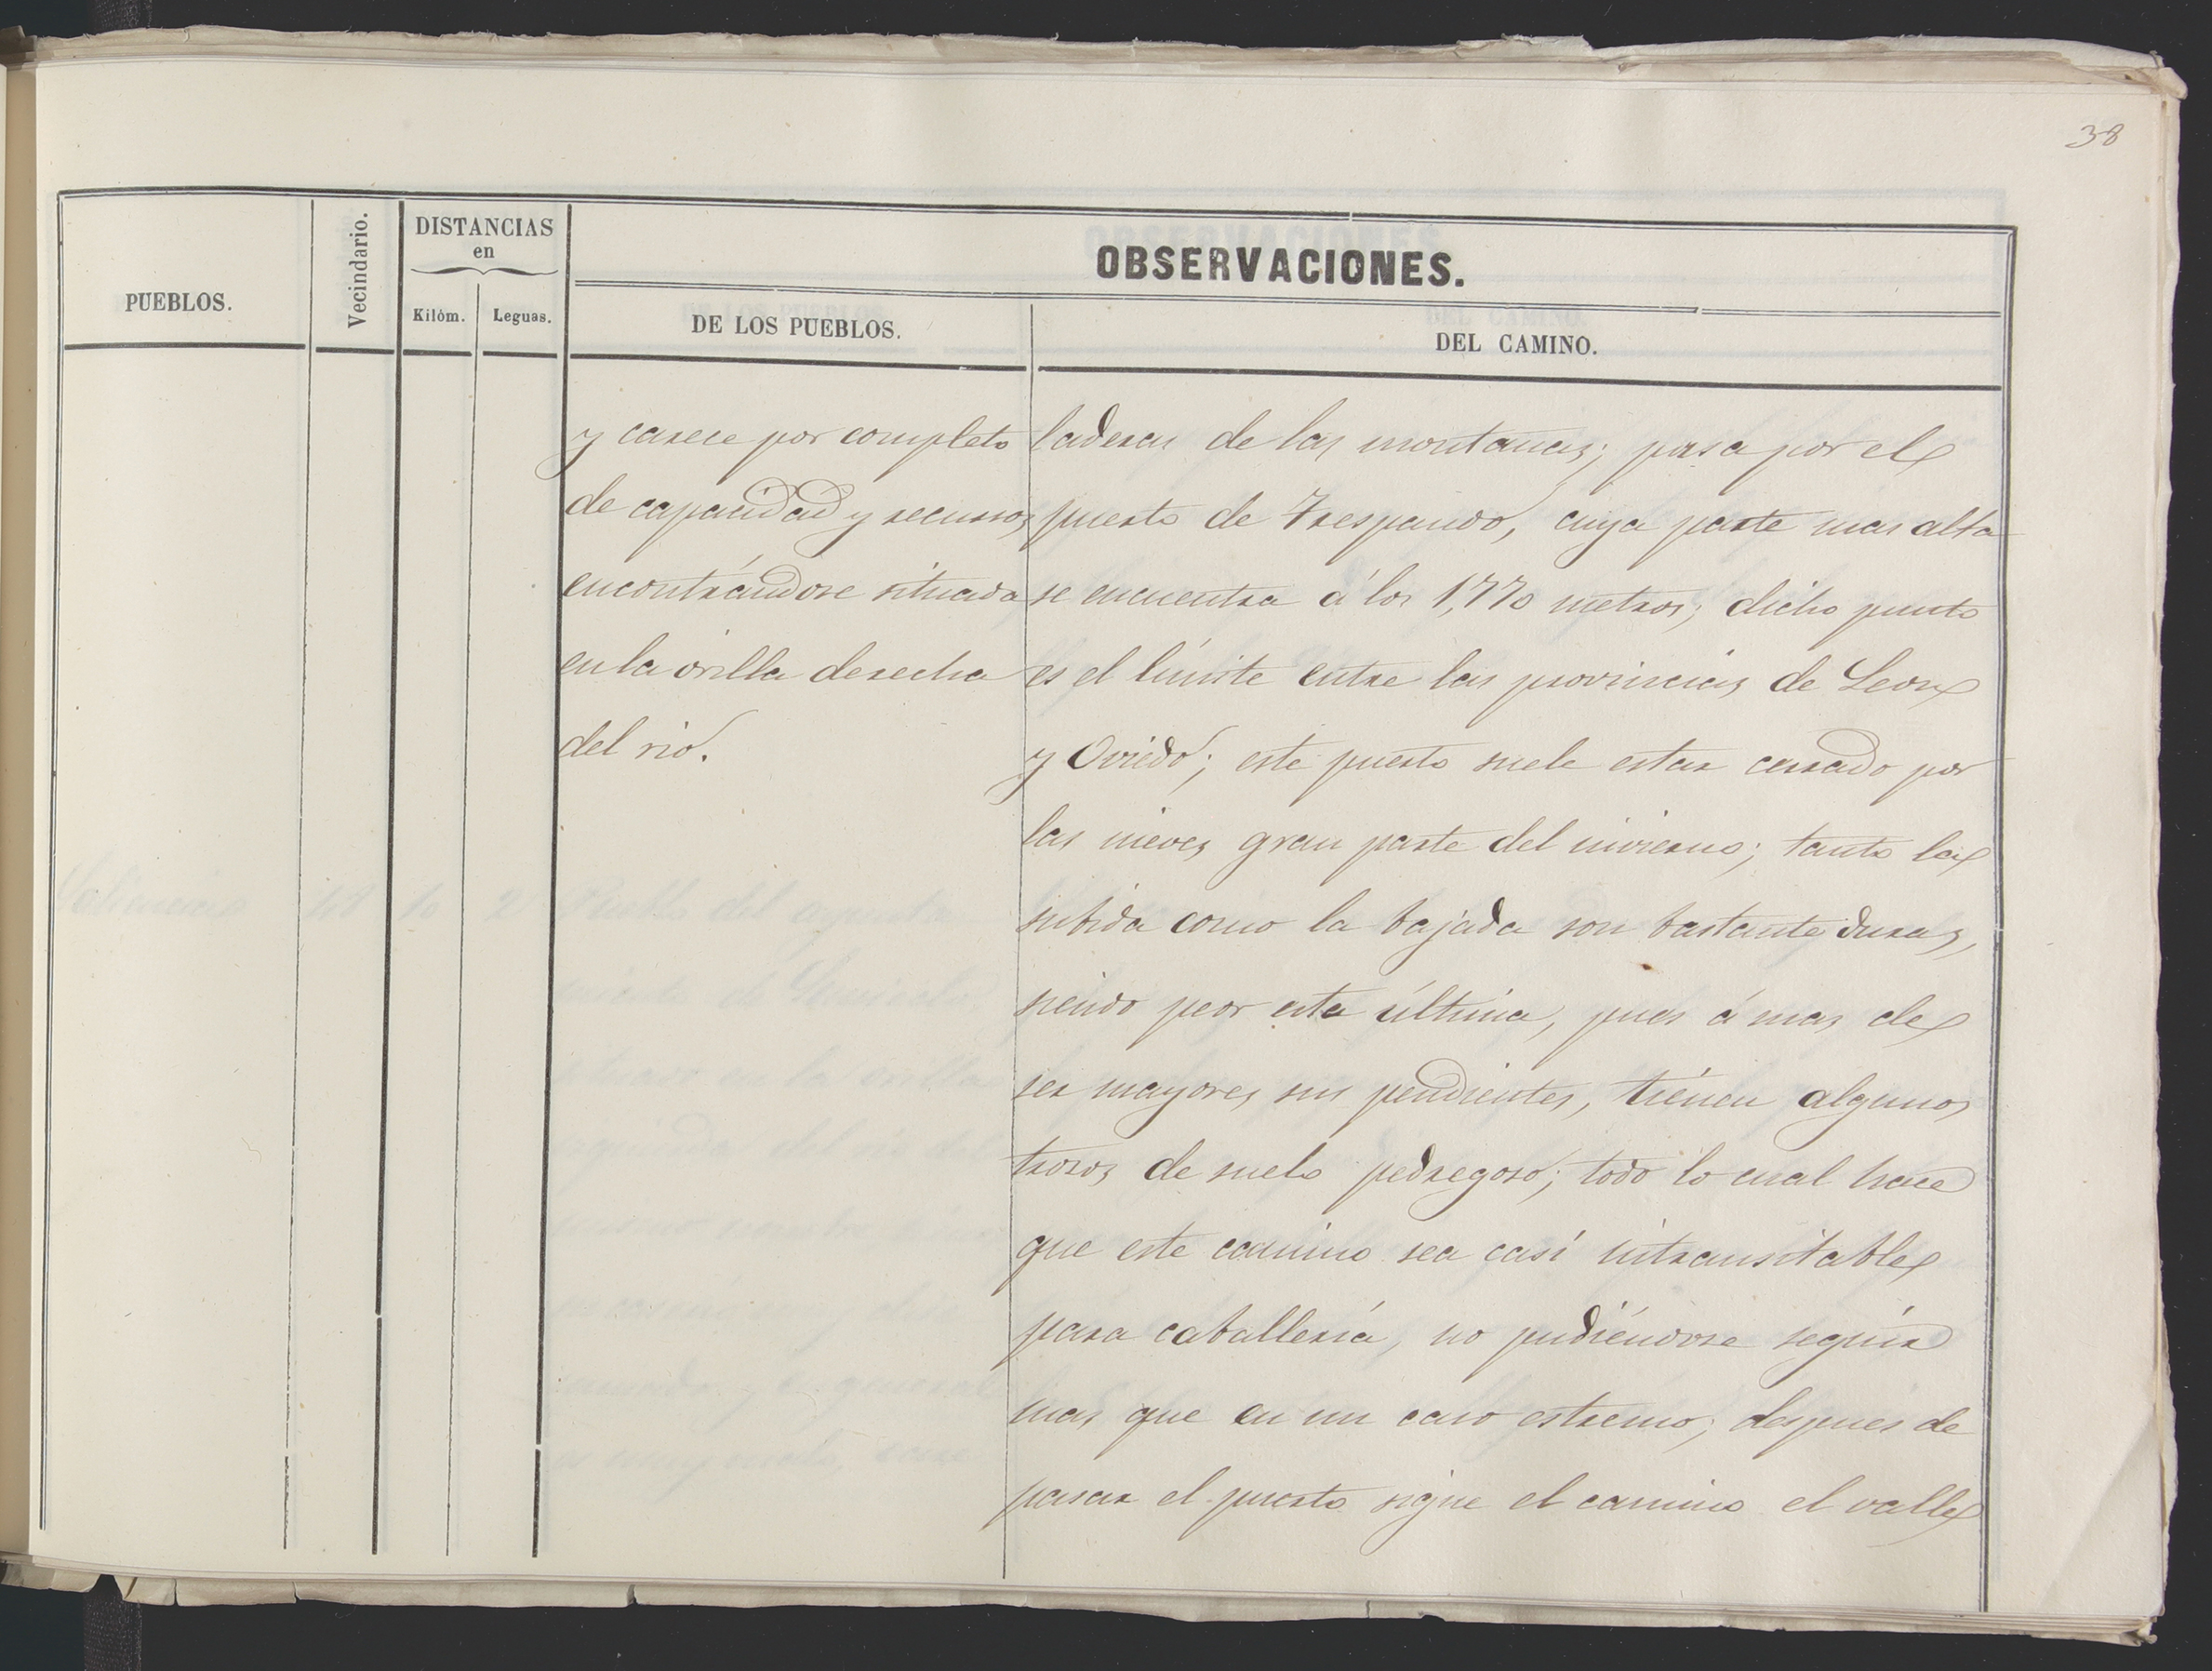 38
OBSERVACIONES.
PUEBLOS.
Vecindario.
DISTANCIAS
en
Kilóm.
Leguas.
DE LOS PUEBLOS.
DEL CAMINO.
y carece por completo
de capacidad y recursos,
encontrándose situada
en la orilla derecha
del rio.
laderas de las montañas; pasa por el
puerto de Trespando, cuya parte mas alta
se encuentra á los 1,770 metros; dicho punto
es el límite entre las provincias de Leon
y Oviedo; este puerto suele estar cerrado por
las nieves gran parte del invierno; tanto la
subida como la bajada son bastante duras,
siendo peor esta última, pues á mas de
ser mayores sus pendientes, tienen algunos
trozos de suelo pedregoso; todo lo cual hace
que este camino sea casi intransitable
para caballería, no pudiéndose seguir
mas que en un caso estremo; despues de
pasar el puerto sigue el camino el valle